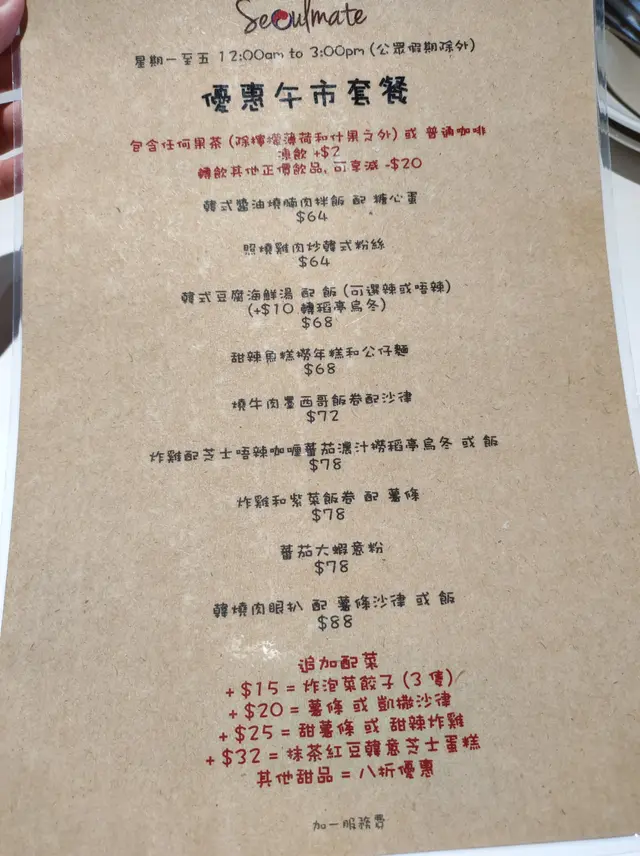 Seoulmate
星期一至五 12:00am to 3:00pm (公眾假期除外)
優惠午市套餐
包含任何果茶 (除檸檬薄荷和什果之外) 或 普通咖啡
凍飲 +$2
轉飲其他正價飲品, 可享減 -$20
韓式醬油燒腩肉拌飯 配 糖心蛋
$64
照燒雞肉炒韓式粉絲
$64
韓式豆腐海鮮湯 配 飯 (可選辣或唔辣)
(+$10 轉稻亭烏冬)
$68
甜辣魚糕撈年糕和公仔麵
$68
燒牛肉墨西哥飯卷配沙律
$72
炸雞配芝士唔辣咖喱蕃茄濃汁撈稻亭烏冬 或 飯
$78
炸雞和紫菜飯卷 配 薯條
$78
蕃茄大蝦意粉
$78
韓燒肉眼扒 配 薯條沙律 或 飯
$88
追加配菜
+ $15 = 炸泡菜餃子 (3 隻)
+ $20 = 薯條 或 凱撒沙律
+ $25 = 甜薯條 或 甜辣炸雞
+ $32 = 抹茶紅豆韓意芝士蛋糕
其他甜品 = 八折優惠
加一服務費